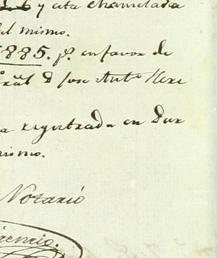 y esta chancelada
del mismo.
1885. pr. en favor de
Gral. D Jose Anto.
a registrada en Dur
mismo.
Notario